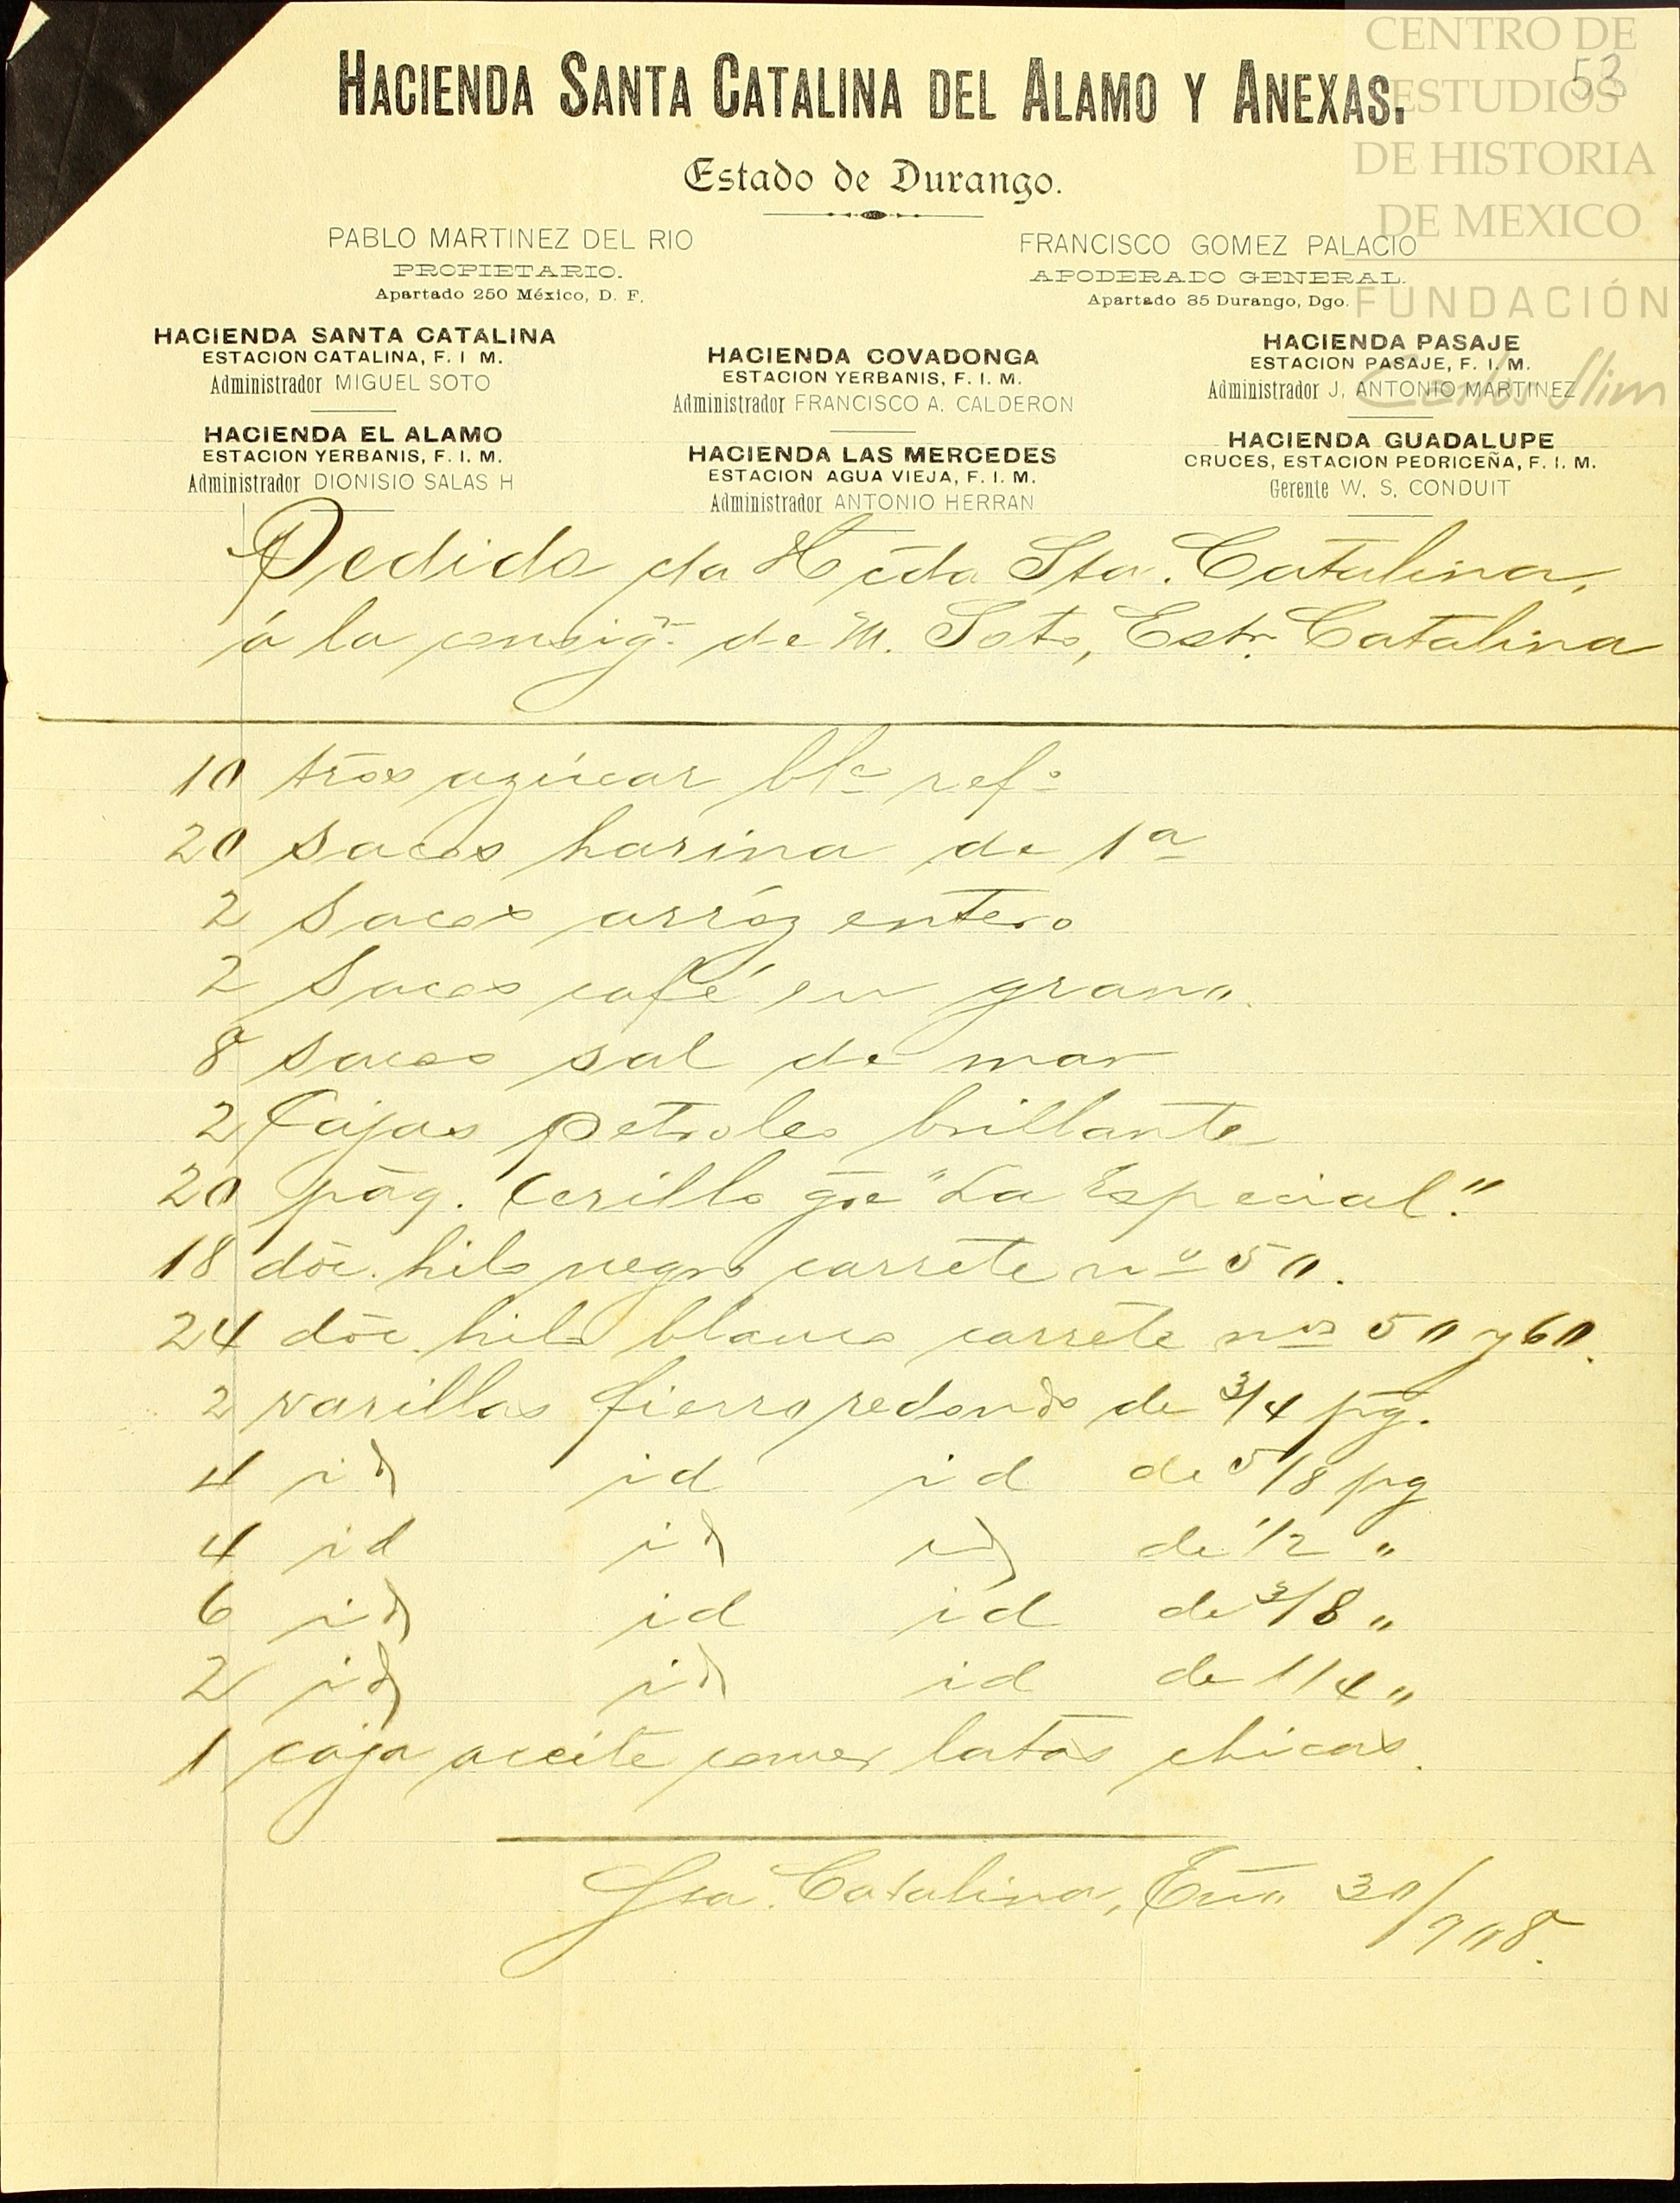 CENTRO DE
ESTUDIOS
DE HISTORIA
DE MEXICO
FUNDACIÓN
Carlos Slim
53
HACIENDA SANTA CATALINA DEL ALAMO Y ANEXAS.
Estado de Durango.
PABLO MARTINEZ DEL RIO
PROPIETARIO.
Apartado 250 México, D. F.
FRANCISCO GOMEZ PALACIO
APODERADO GENERAL.
Apartado 85 Durango, Dgo.
HACIENDA SANTA CATALINA
ESTACION CATALINA, F. I M.
Administrador MIGUEL SOTO
HACIENDA EL ALAMO
ESTACION YERBANIS, F. I. M.
Administrador DIONISIO SALAS H
HACIENDA COVADONGA
ESTACION YERBANIS, F. I. M.
Administrador FRANCISCO A. CALDERON
HACIENDA LAS MERCEDES
ESTACION AGUA VIEJA, F. I. M.
Administrador ANTONIO HERRAN
HACIENDA PASAJE
ESTACION PASAJE, F. I. M.
Administrador J. ANTONIO MARTINEZ
HACIENDA GUADALUPE
CRUCES, ESTACION PEDRICEÑA, F. I. M.
Gerente W. S. CONDUIT
Pedido da Hcda Sta. Catalina,
á la consigⁿ de M. Soto, Estn. Catalina
10 azúcar blc refº
20 sacos harina de 1ª
2 sacos arróz entero
2 sacos café en grano.
8 sacos sal de mar
2 Cajas petroleo brillante
20 paq. Cerillo gde "La Especial."
18 doc. hilo negro carrete nº 50.
24 doc. hilo blanco carrete nos 50 y 60.
2 varillas fierro redondo de 3/4 pg.
4 id id id de 5/8 pg
4 id id id de 1/2 "
6 id id id de 3/8 "
2 id id id de 1/4 "
1 caja aceite comer latas chicas.
Sta. Catalina, Eno 30/908.